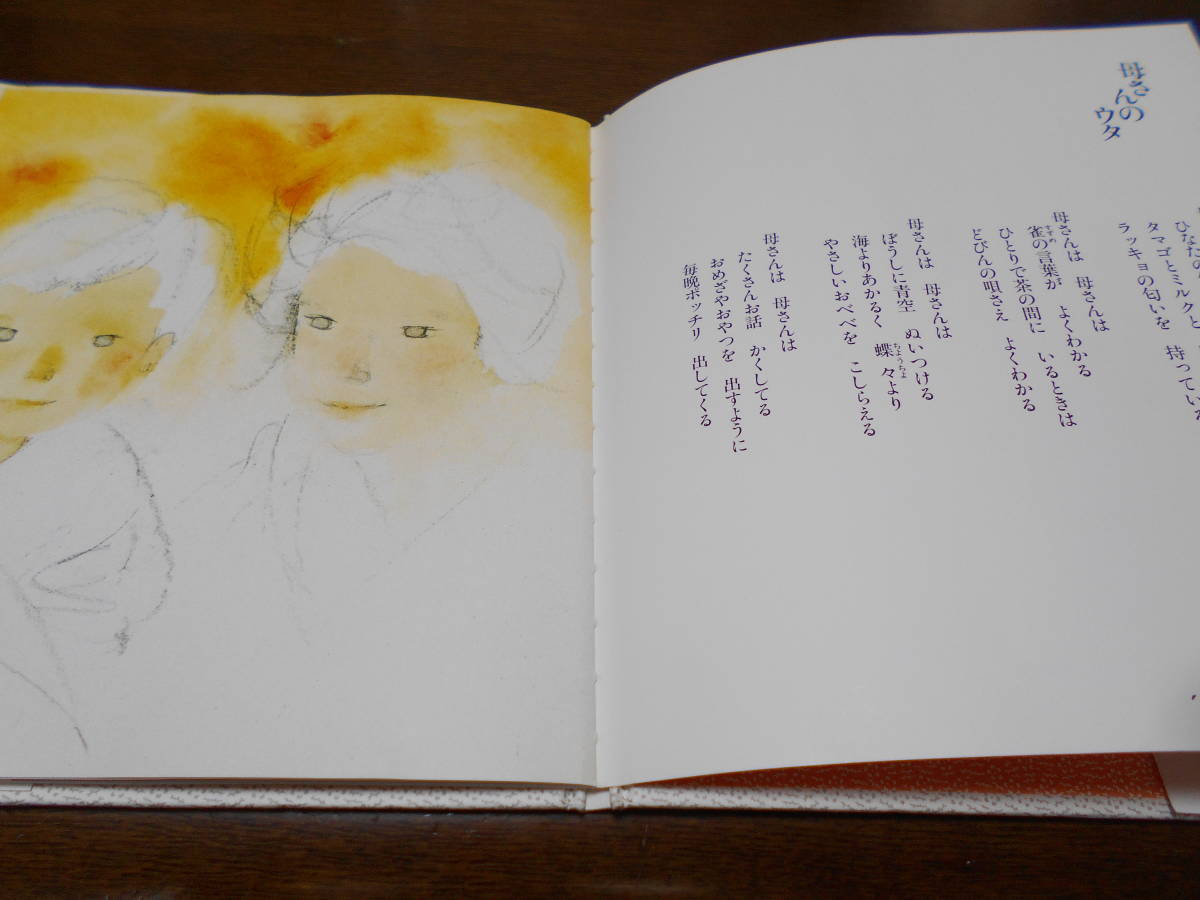 母さんの
ウタ
ひなたの
タマゴとミルクと
ラッキョの匂いを 持っている
母さんは 母さんは
雀の言葉が よくわかる
ひとりで茶の間に いるときは
どびんの唄さえ よくわかる
母さんは 母さんは
ぼうしに青空 ぬいつける
海よりあかるく 蝶々より
やさしいおべべを こしらえる
母さんは 母さんは
たくさんお話 かくしてる
おめざやおやつを 出すように
毎晩ポッチリ 出してくる